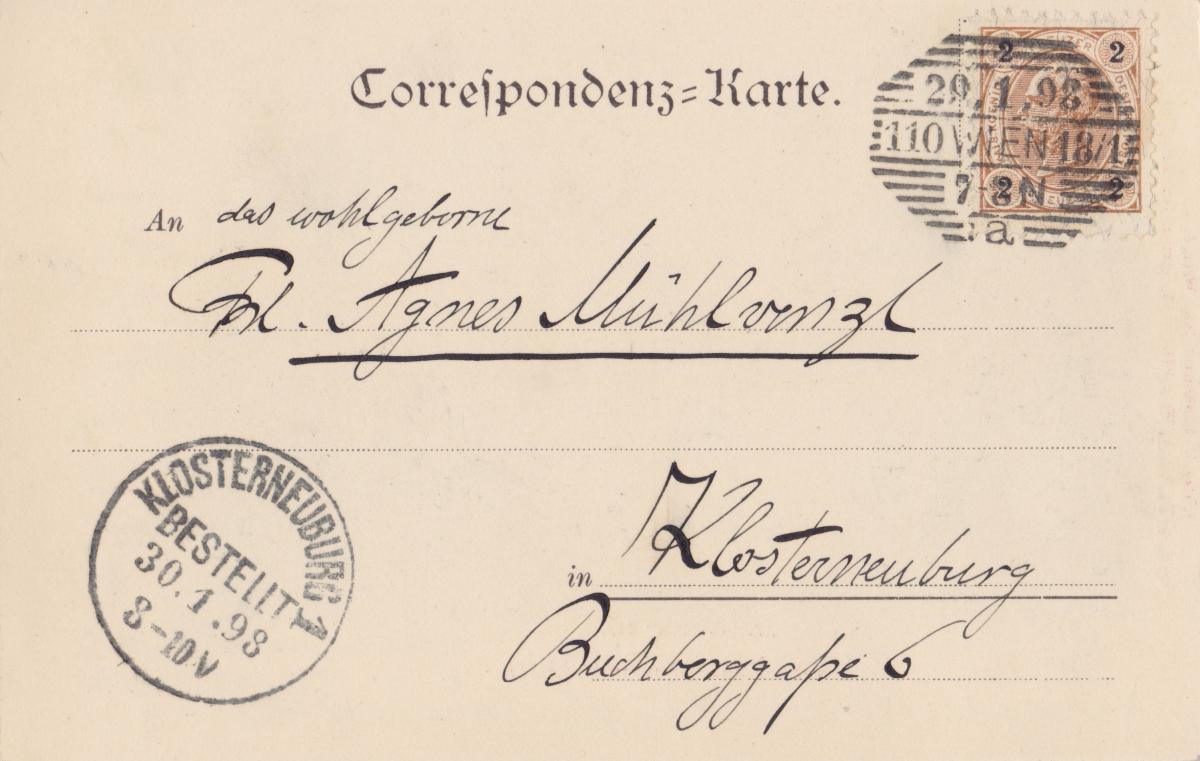 Correſpondenz=Karte.
2 2
29.1.98
110 WIEN 18/1
7-8N
a
2 2
An das wohlgeborne
Frl. Agnes Mühlvenzl
in Klosterneuburg
Buchberggaße 6
KLOSTERNEUBURG 1
BESTELLT
30.1.98
8-10V